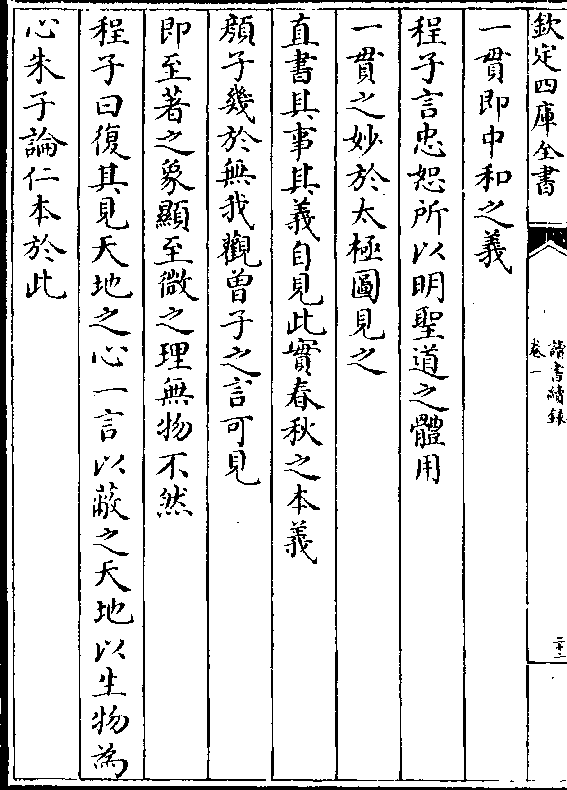 欽定四庫全書
讀書續錄
卷一
二十二
一貫即中和之義
程子言忠恕所以明聖道之體用
一貫之妙於太極圖見之
直書其事其義自見此實春秋之本義
顔子幾於無我觀曾子之言可見
即至著之象顯至微之理無物不然
程子曰復其見天地之心一言以蔽之天地以生物為
心朱子論仁本於此